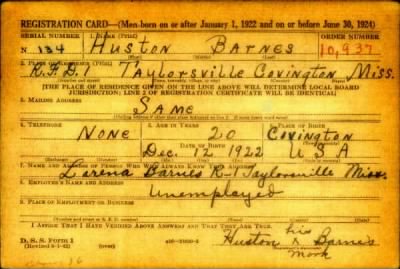 REGISTRATION CARD—(Men born on or after January 1, 1922 and on or before June 30, 1924)
SERIAL NUMBER 1. NAME (Print) ORDER NUMBER
N 134 HUSTON BARNES 10,937
2. PLACE OF RESIDENCE (Print)
R.F.D. 1 TAYLORSVILLE COVINGTON MISS.
[THE PLACE OF RESIDENCE GIVEN ON THE LINE ABOVE WILL DETERMINE LOCAL BOARD
JURISDICTION; LINE 2 OF REGISTRATION CERTIFICATE WILL BE IDENTICAL]
3. MAILING ADDRESS
SAME
4. TELEPHONE 5. AGE IN YEARS 6. PLACE OF BIRTH
NONE 20 COVINGTON
DATE OF BIRTH
Dec. 12 1922 USA
7. NAME AND ADDRESS OF PERSON WHO WILL ALWAYS KNOW YOUR ADDRESS
Lerena Barnes R-1 Taylorsville Miss.
8. EMPLOYER'S NAME AND ADDRESS
Unemployed
I AFFIRM THAT I HAVE VERIFIED ABOVE ANSWERS AND THAT THEY ARE TRUE.
D. S. S. Form 1 Huston his x mark Barnes
(over)